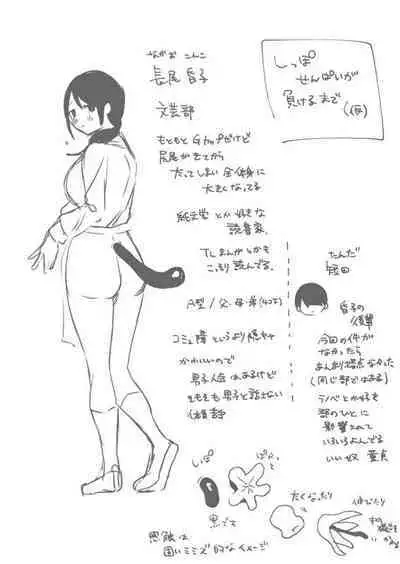 しっぽ
せんぱいが
負けるまで
(仮)
ながお こんこ
長尾 昏子
文芸部
もともとGカップだけど
尻尾がきてから
だってしまい 全体的に
大きくなってる
純文学とか好きな
読書家。
TLまんがとかも
こっそり読んでる。
A型/父・母・弟
コミュ障というより陰キャ
かわいいので
男子人気はあるけど
そもそも男子と話さない
たんだ
昏子の
後輩
今回の件が
なかったら
あんまり接点なかった
(同じ部ではある)
ラノベとか好き
部のひとに
影響されて
いろいろよんでる
いい奴 童貞
しっぽ
ぱんっ
思って
たくなったり
伸びたり
感触は
固いミミズ的なイメージ